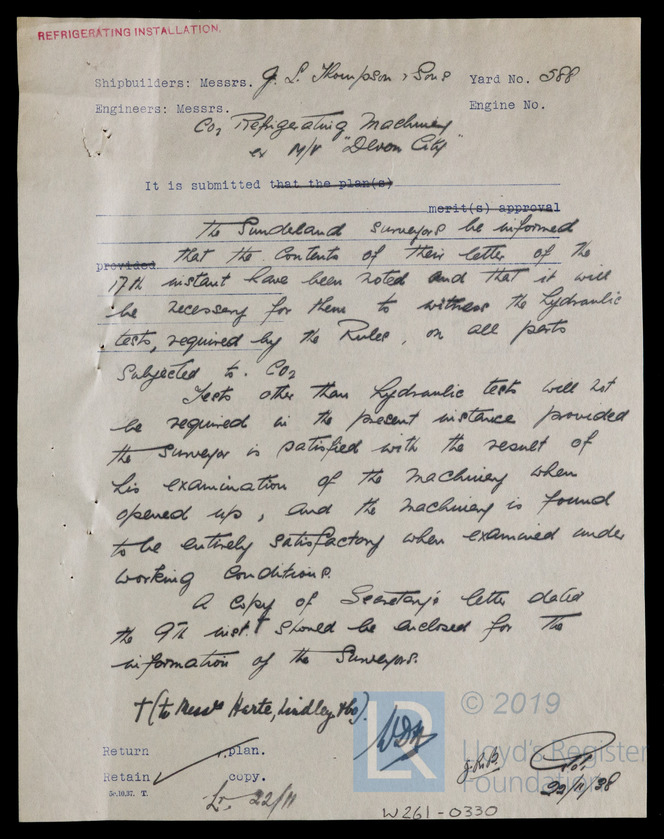 REFRIGERATING INSTALLATION.
Shipbuilders: Messrs. J. L. Thompson & Sons Yard No. 588
Engineers: Messrs. Engine No.
CO2 Refrigerating Machinery
ex M/V "Devon City"
It is submitted that the plan(s)
merit(s) approval
The Sunderland Surveyors be informed
provided that the contents of their letter of the
17th instant have been noted and that it will
be necessary for them to witness the hydraulic
tests, required by the Rules, on all parts
subjected to CO2
Tests other than hydraulic tests will not
be required in the present instance provided
the Surveyor is satisfied with the result of
his examination of the machinery when
opened up, and the machinery is found
to be entirely satisfactory when examined under
working conditions.
A copy of Secretary's letter dated
the 9th inst.† should be enclosed for the
information of the Surveyors.
† (to Messrs Harte, Lindley & Co).
Return plan.
Retain copy.
5c.10.37. T.
Lr. 22/11
22/11/38
W261-0330
LR
© 2019
Lloyd's Register
Foundation